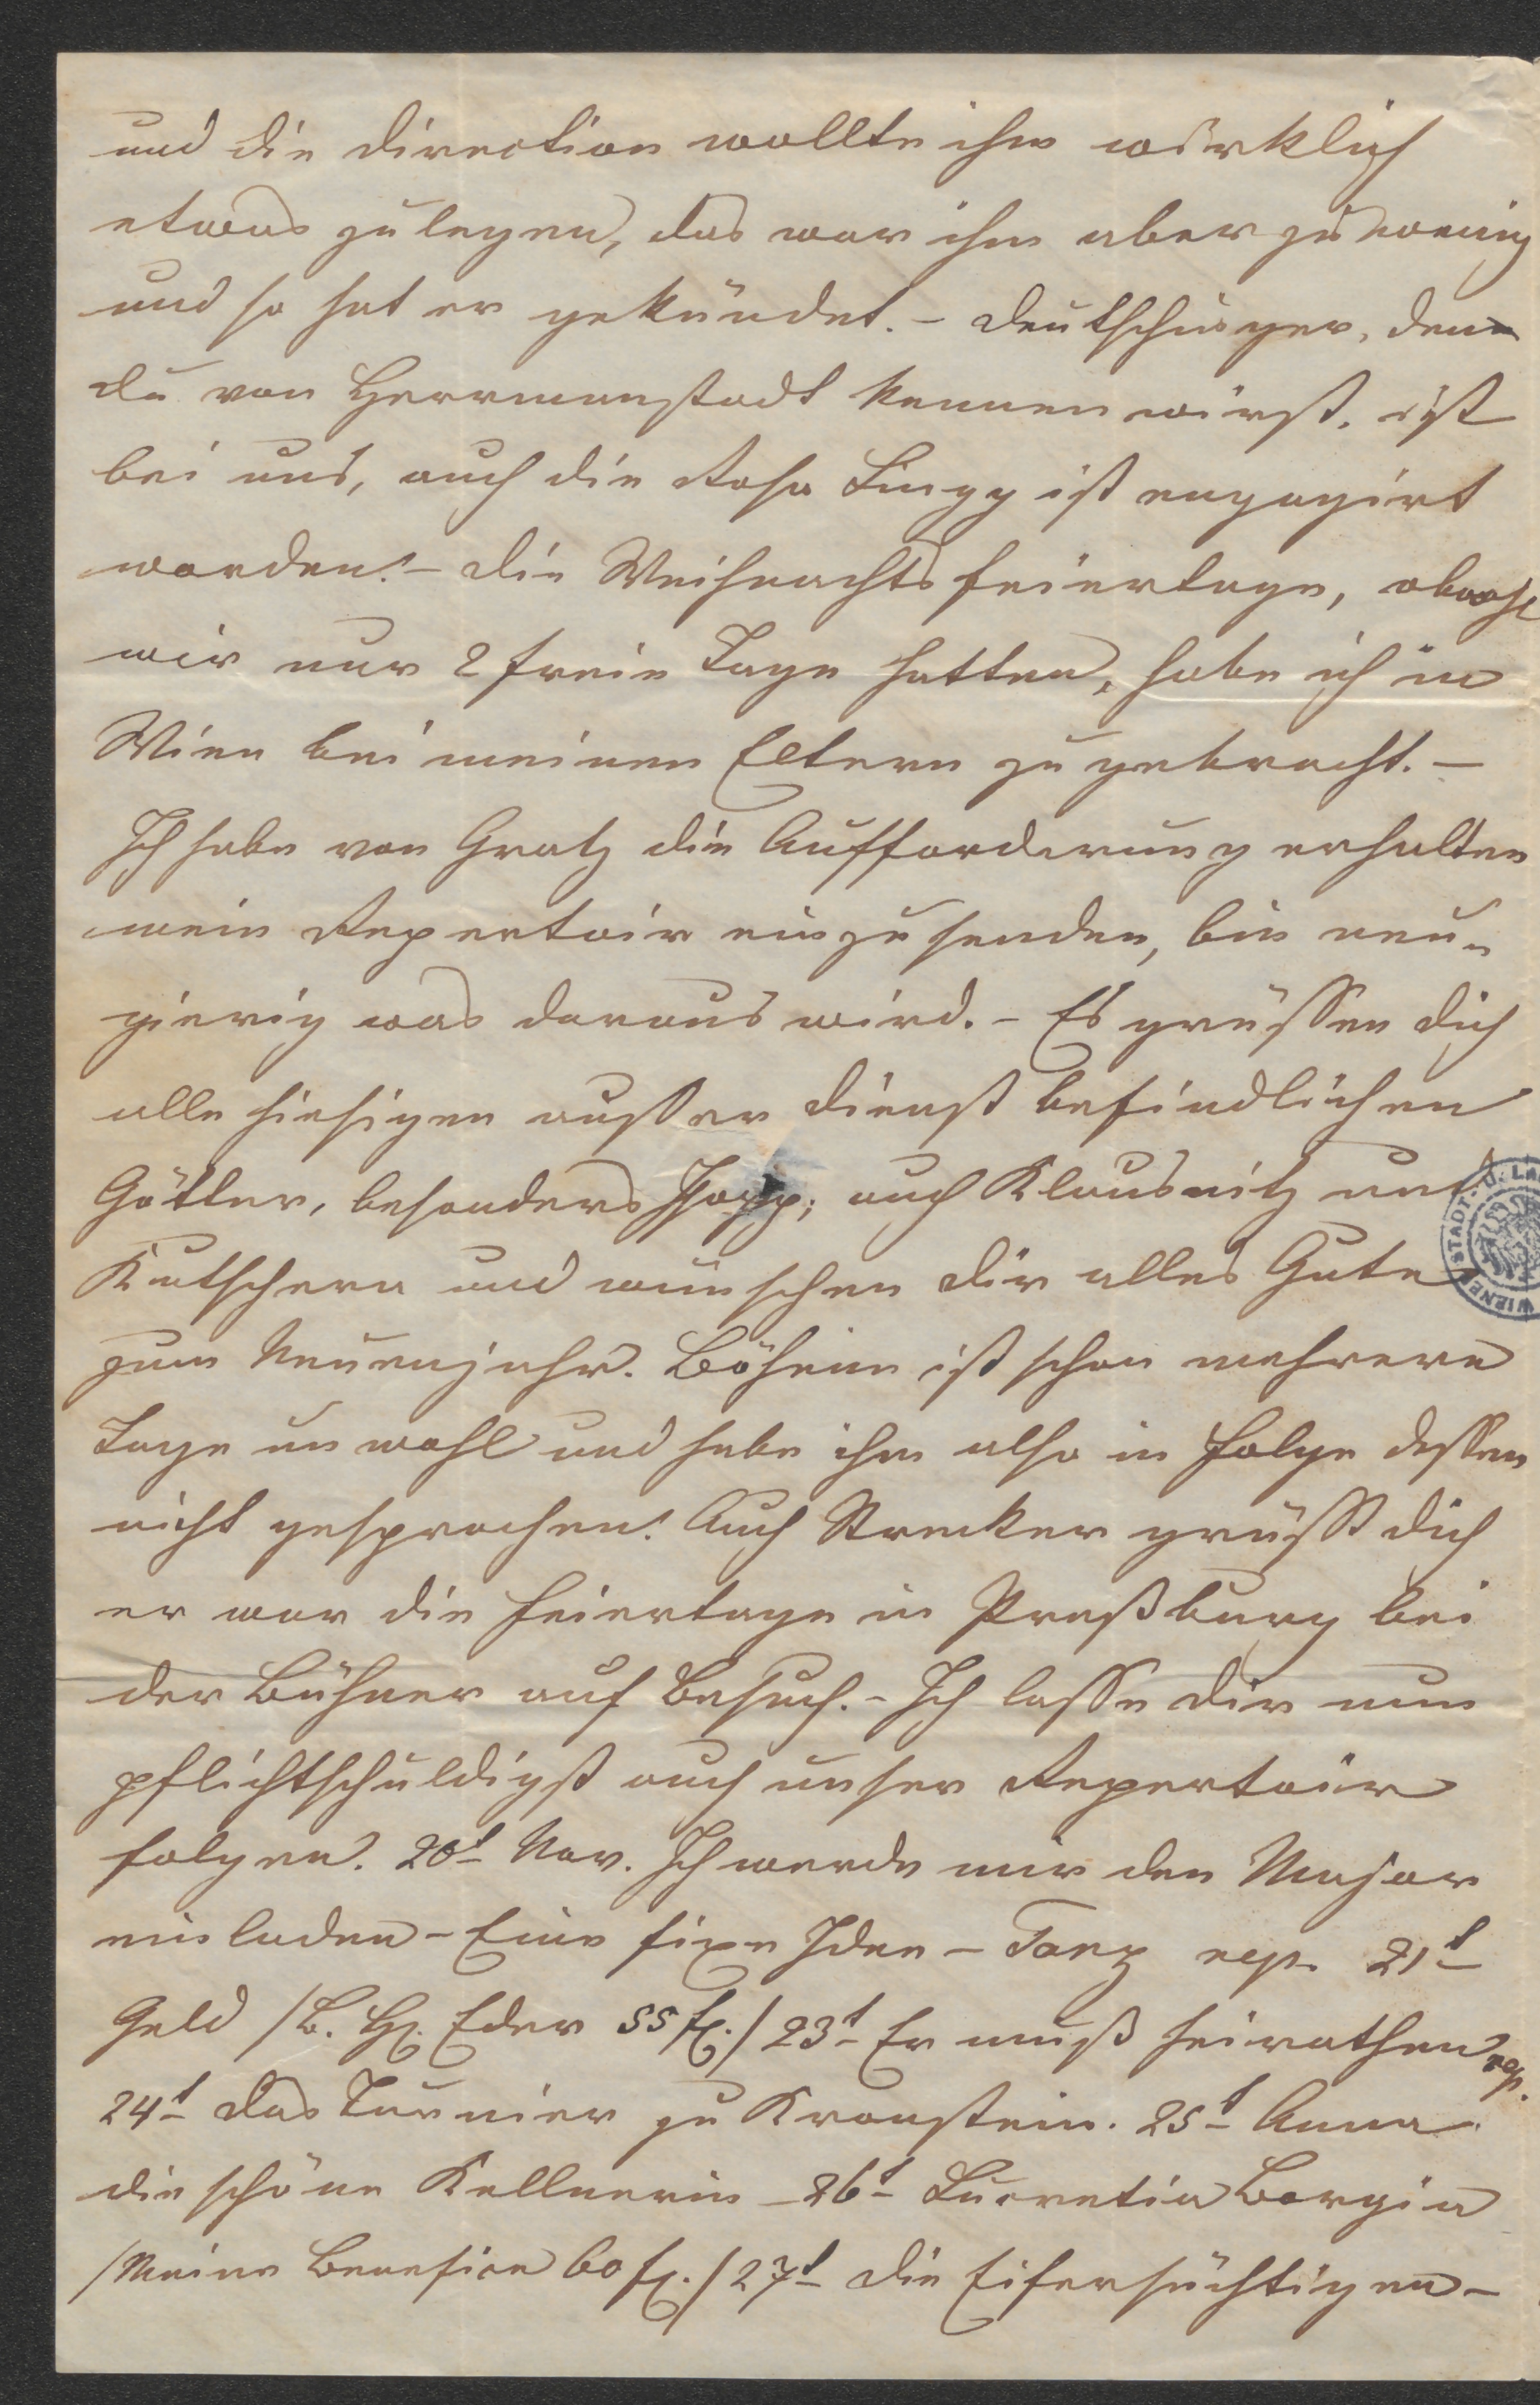 und die Direction wollte ihm wirklich
etwas zulegen, das war ihm aber zu wenig
und so hat er gekündet. – Deutschinger, den
Du von Herrmanstadt kennen wirst, ist
bei uns, auch die Rosa Lingg ist engagirt
worden. – Die Weihnachtsfeiertage, obwohl
wir nur 2 freie Tage hatten, habe ich in
Wien bei meinen Eltern zugebracht. –
Ich habe von Gratz die Aufforderung erhalten
mein Repertoir einzusenden, bin neu-
gierig was daraus wird. – Es grüssen Dich
alle hiesigen ausser Dienst befindlichen
Götter, besonders auch Klausnitz und
Kutschera und wünschen Dir alles Gute
zum Neuenjahr. Böheim ist schon mehrere
Tage unwohl und habe ihn also in Folge dessen
nicht gesprochen. Auch Strecker grüsst Dich
er war die Feiertage in Preßburg bei
der Bühner auf Besuch. – Ich lasse Dir nun
pflichtschuldigst auch unser Repertoir
folgen. 20t Nov. Ich werde mir den Major
einladen – Eine fixe Idee – Tanz rep. 21t
Geld /B. H. Eder 55 fl./ 23t Er muß heirathen rep.
24t Das Turnier zu Kronstein. 25t Anna
die schöne Kellnerin – 26t Lucretia Borgia
/Meine Benefice 60 fl./ 27t Die Eifersüchtigen –
STADT- U. LA
WIENE